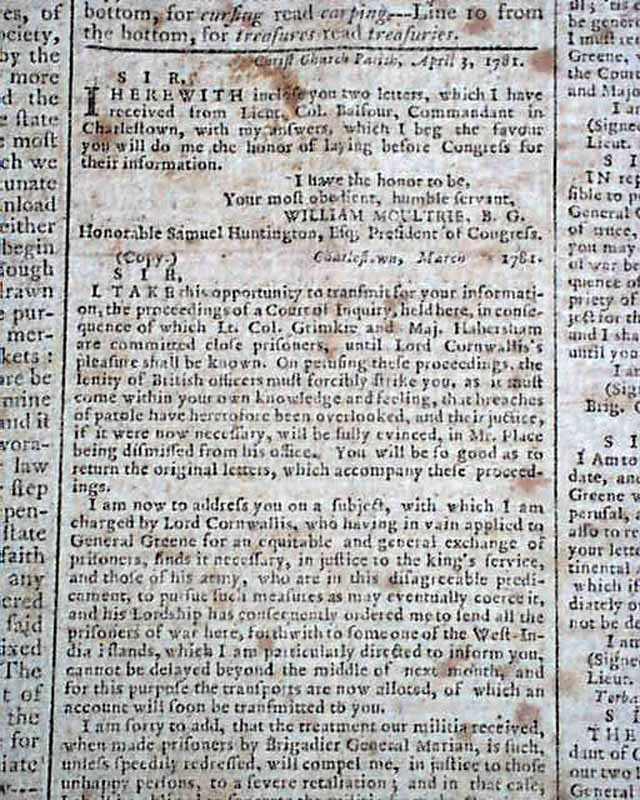 es, of
ociety,
by the
more
d the
e state
e most
ch we
tunate
nload
either
begin
ough
drawn
e pur-
mer-
kets :
are be
mine
and it
vora-
law
step
pen-
state
faith
any
cred
said
ixed
The
t of
the
for
iate
bottom, for cursing read carping.---Line 10 from
the bottom, for treasures read treasuries.
Christ Church Parish, April 3, 1781.
S I R,
I HEREWITH inclose you two letters, which I have
received from Lieut. Col. Balfour, Commandant in
Charlestown, with my answers, which I beg the favour
you will do me the honor of laying before Congress for
their information.
I have the honor to be,
Your most obedient, humble servant,
WILLIAM MOULTRIE, B. G.
Honorable Samuel Huntington, Esq; President of Congress.
(Copy.) Charlestown, March 1781.
S I R,
I TAKE this opportunity to transmit for your informati-
on, the proceedings of a Court of Inquiry, held here, in conse-
quence of which Lt. Col. Grimkie and Maj. Habersham
are committed close prisoners, until Lord Cornwallis's
pleasure shall be known. On perusing these proceedings, the
lenity of British officers must forcibly strike you, as it must
come within your own knowledge and feeling, that breaches
of parole have heretofore been overlooked, and their justice,
if it were now necessary, will be fully evinced, in Mr. Place
being dismissed from his office. You will be so good as to
return the original letters, which accompany these proceed-
ings.
I am now to address you on a subject, with which I am
charged by Lord Cornwallis, who having in vain applied to
General Greene for an equitable and general exchange of
prisoners, finds it necessary, in justice to the king's service,
and those of his army, who are in this disagreeable predi-
cament, to pursue such measures as may eventually coerce it,
and his Lordship has consequently ordered me to send all the
prisoners of war here, forthwith to some one of the West-In-
dia islands, which I am particularly directed to inform you,
cannot be delayed beyond the middle of next month, and
for this purpose the transports are now alloted, of which an
account will soon be transmitted to you.
I am sorry to add, that the treatment our militia received,
when made prisoners by Brigadier General Marian, is such,
unless speedily redressed, will compel me, in justice to those
unhappy persons, to a severe retaliation; and in that case,
be gener
I must
Greene, v
the Cour
and Majo
I am
(Signe
Lieut.
S I
IN rep
sible to p
General
of truce,
you may
of war be
quence of
priety of
ject for th
and I sha
until you
I am
(Sig
Brig. G
S I
I Am to
date, and
Greene w
perusal,
also to re
your lette
tinental A
which it
diately o
not be de
I am
(Signe
Lieut.
Torba
S I
THE
dant of C
our two
General